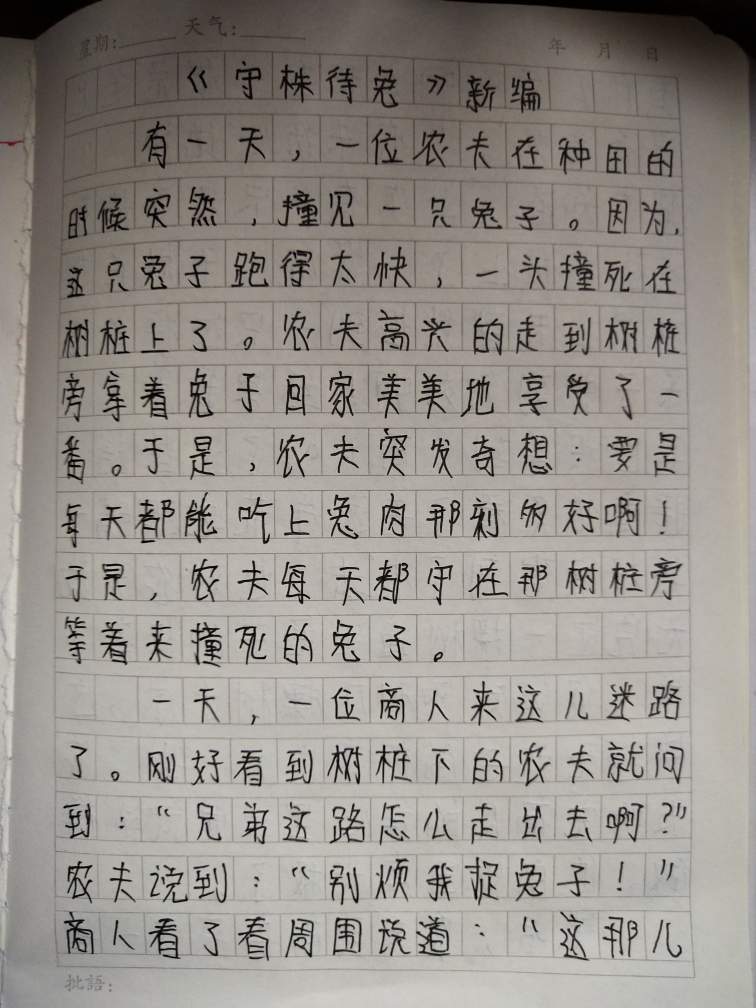 星期:______ 天气:______ 年 月 日
《守株待兔》新编
有一天，一位农夫在种田的
时候突然，撞见一只兔子。因为，
这只兔子跑得太快，一头撞死在
树桩上了。农夫高兴的走到树桩
旁拿着兔子回家美美地享受了一
番。于是，农夫突发奇想：要是
每天都能吃上兔肉那刻多好啊！
于是，农夫每天都守在那树桩旁
等着来撞死的兔子。
一天，一位商人来这儿迷路
了。刚好看到树桩下的农夫就问
到：“兄弟这路怎么走出去啊？”
农夫说到：“别烦我捉兔子！”
商人看了看周围说道：“这那儿
批語: